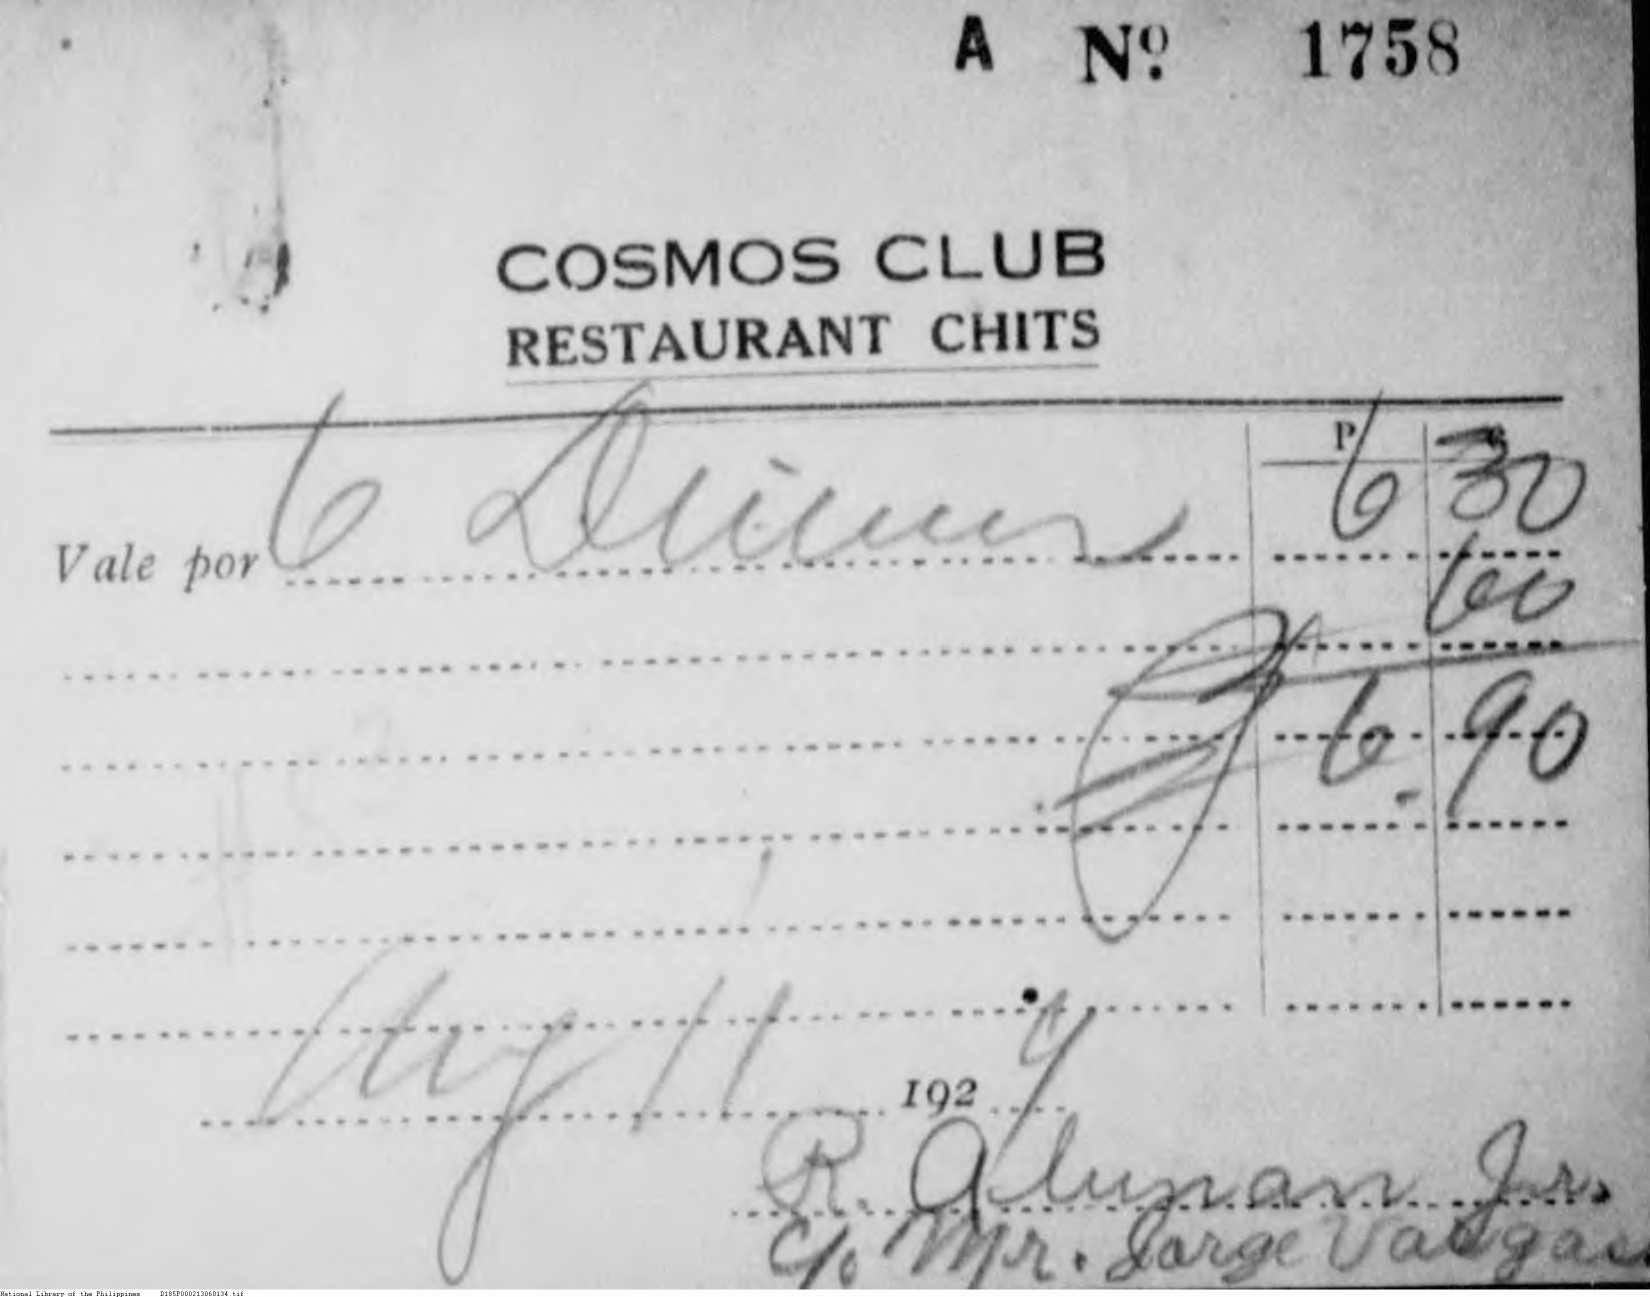 A Nº 1758
COSMOS CLUB
RESTAURANT CHITS
P
Vale por 6 Dinner 6 30
60
6.90
Aug 11 1929
R. Alunan Jr.
c/o. Mr. Jorge Vargas
National Library of the Philippines D185P000213060134.tif